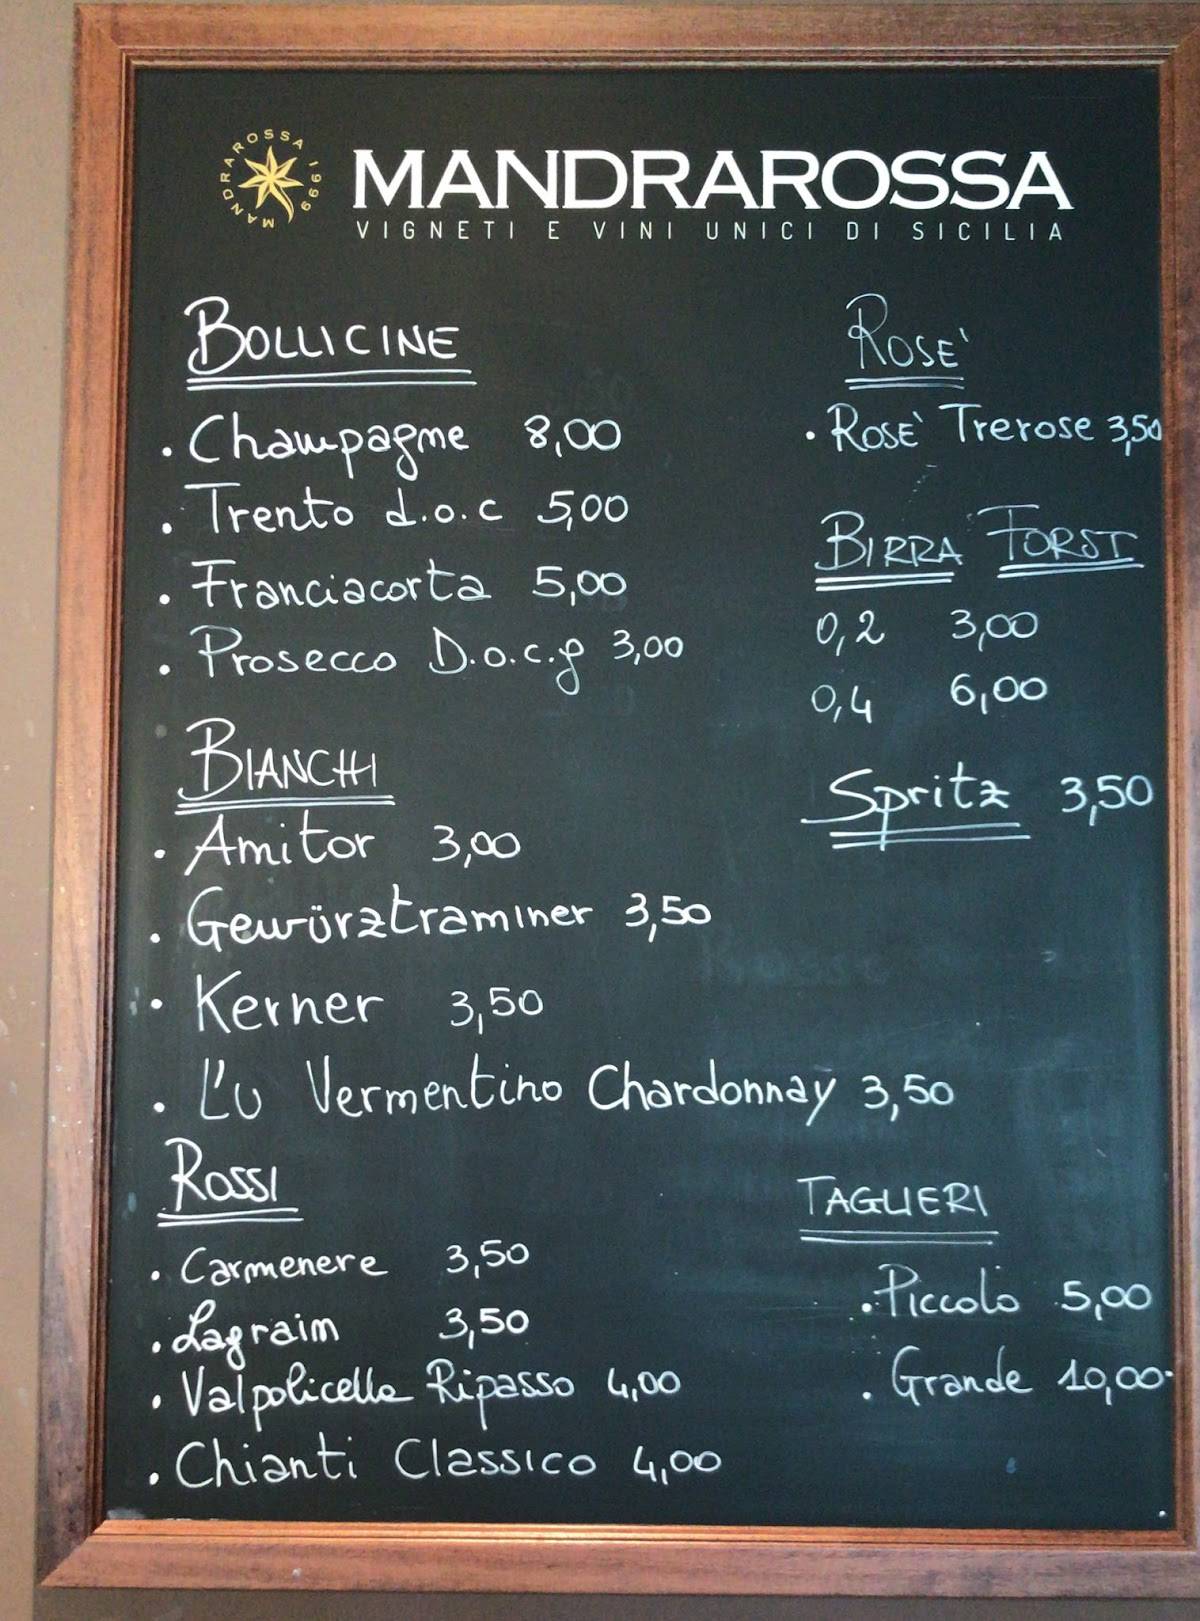 MANDRAROSSA 1999
MANDRAROSSA
MANDRAROSSA
VIGNETI E VINI UNICI DI SICILIA
BOLLICINE
. Champagne 8,00
. Trento d.o.c 5,00
. Franciacorta 5,00
. Prosecco D.o.c.g 3,00
BIANCHI
. Amitor 3,00
. Gewürztraminer 3,50
. Kerner 3,50
. L'U Vermentino Chardonnay 3,50
ROSSI
. Carmenere 3,50
. Lagraim 3,50
. Valpolicella Ripasso 4,00
. Chianti Classico 4,00
ROSE'
. ROSE' Trerose 3,50
BIRRA FORST
0,2 3,00
0,4 6,00
Spritz 3,50
TAGLIERI
. Piccolo 5,00
. Grande 10,00